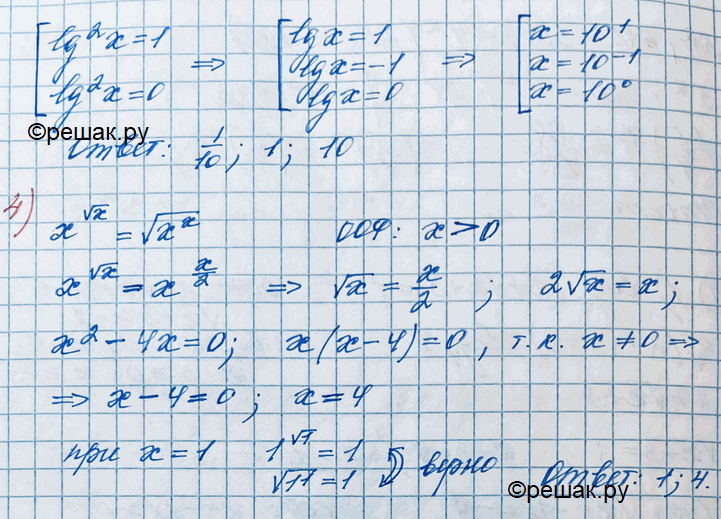 lg²x=1
lg²x=0
=>
lgx=1
lgx=-1
lgx=0
=>
x=10¹
x=10⁻¹
x=10⁰
©решак.ру
Ответ: 1/10; 1; 10
4)
x^√x = √(x^x) ООФ: x>0
x^√x = x^(x/2) => √x = x/2 ; 2√x = x;
x² - 4x = 0; x(x-4)=0, т.к. x≠0 =>
=> x-4=0; x=4
при x=1 1^√1 = 1
√1¹ = 1 верно Ответ: 1; 4.
©решак.ру